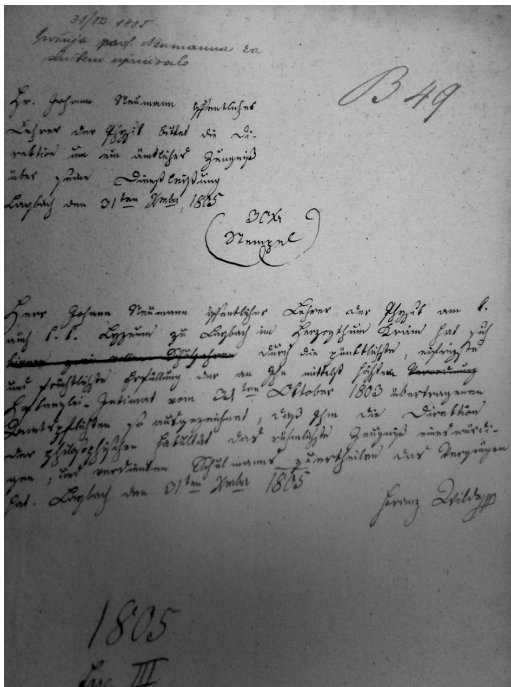 31/12 1805
prof. Neumanna za
B 49
Hr. Johann Neumann öffentlicher
Lehrer der Physik bittet die Di-
rektion um ein ämtliches Zeugniß
über seine Dienstleistung
Laybach den 31ten Xmber 1805
30 Xr
Stempel
Herr Johann Neumann öffentlicher Lehrer der Physik am k.
auch k. k. Lyzeum zu Laybach im Herzogthum Krain hat sich
binnen zwei vollen Schuljahren durch die pünktlichste eifrigste
und Erfüllung der an Ihn mittelst höchster Verordnung
Hofkanzlei-Intimat vom 21ten Oktober 1803 übertragenen
Amtspflichten so ausgezeichnet, daß Ihm die Direktion
der philosophischen Fakultät das rühmlichste Zeugniß eines würdi-
gen, und verdienten Schulmanns zuertheilen das Vergnügen
hat. Laybach den 31ten Xmber 1805
Franz Wilde
1805
Fasc. III